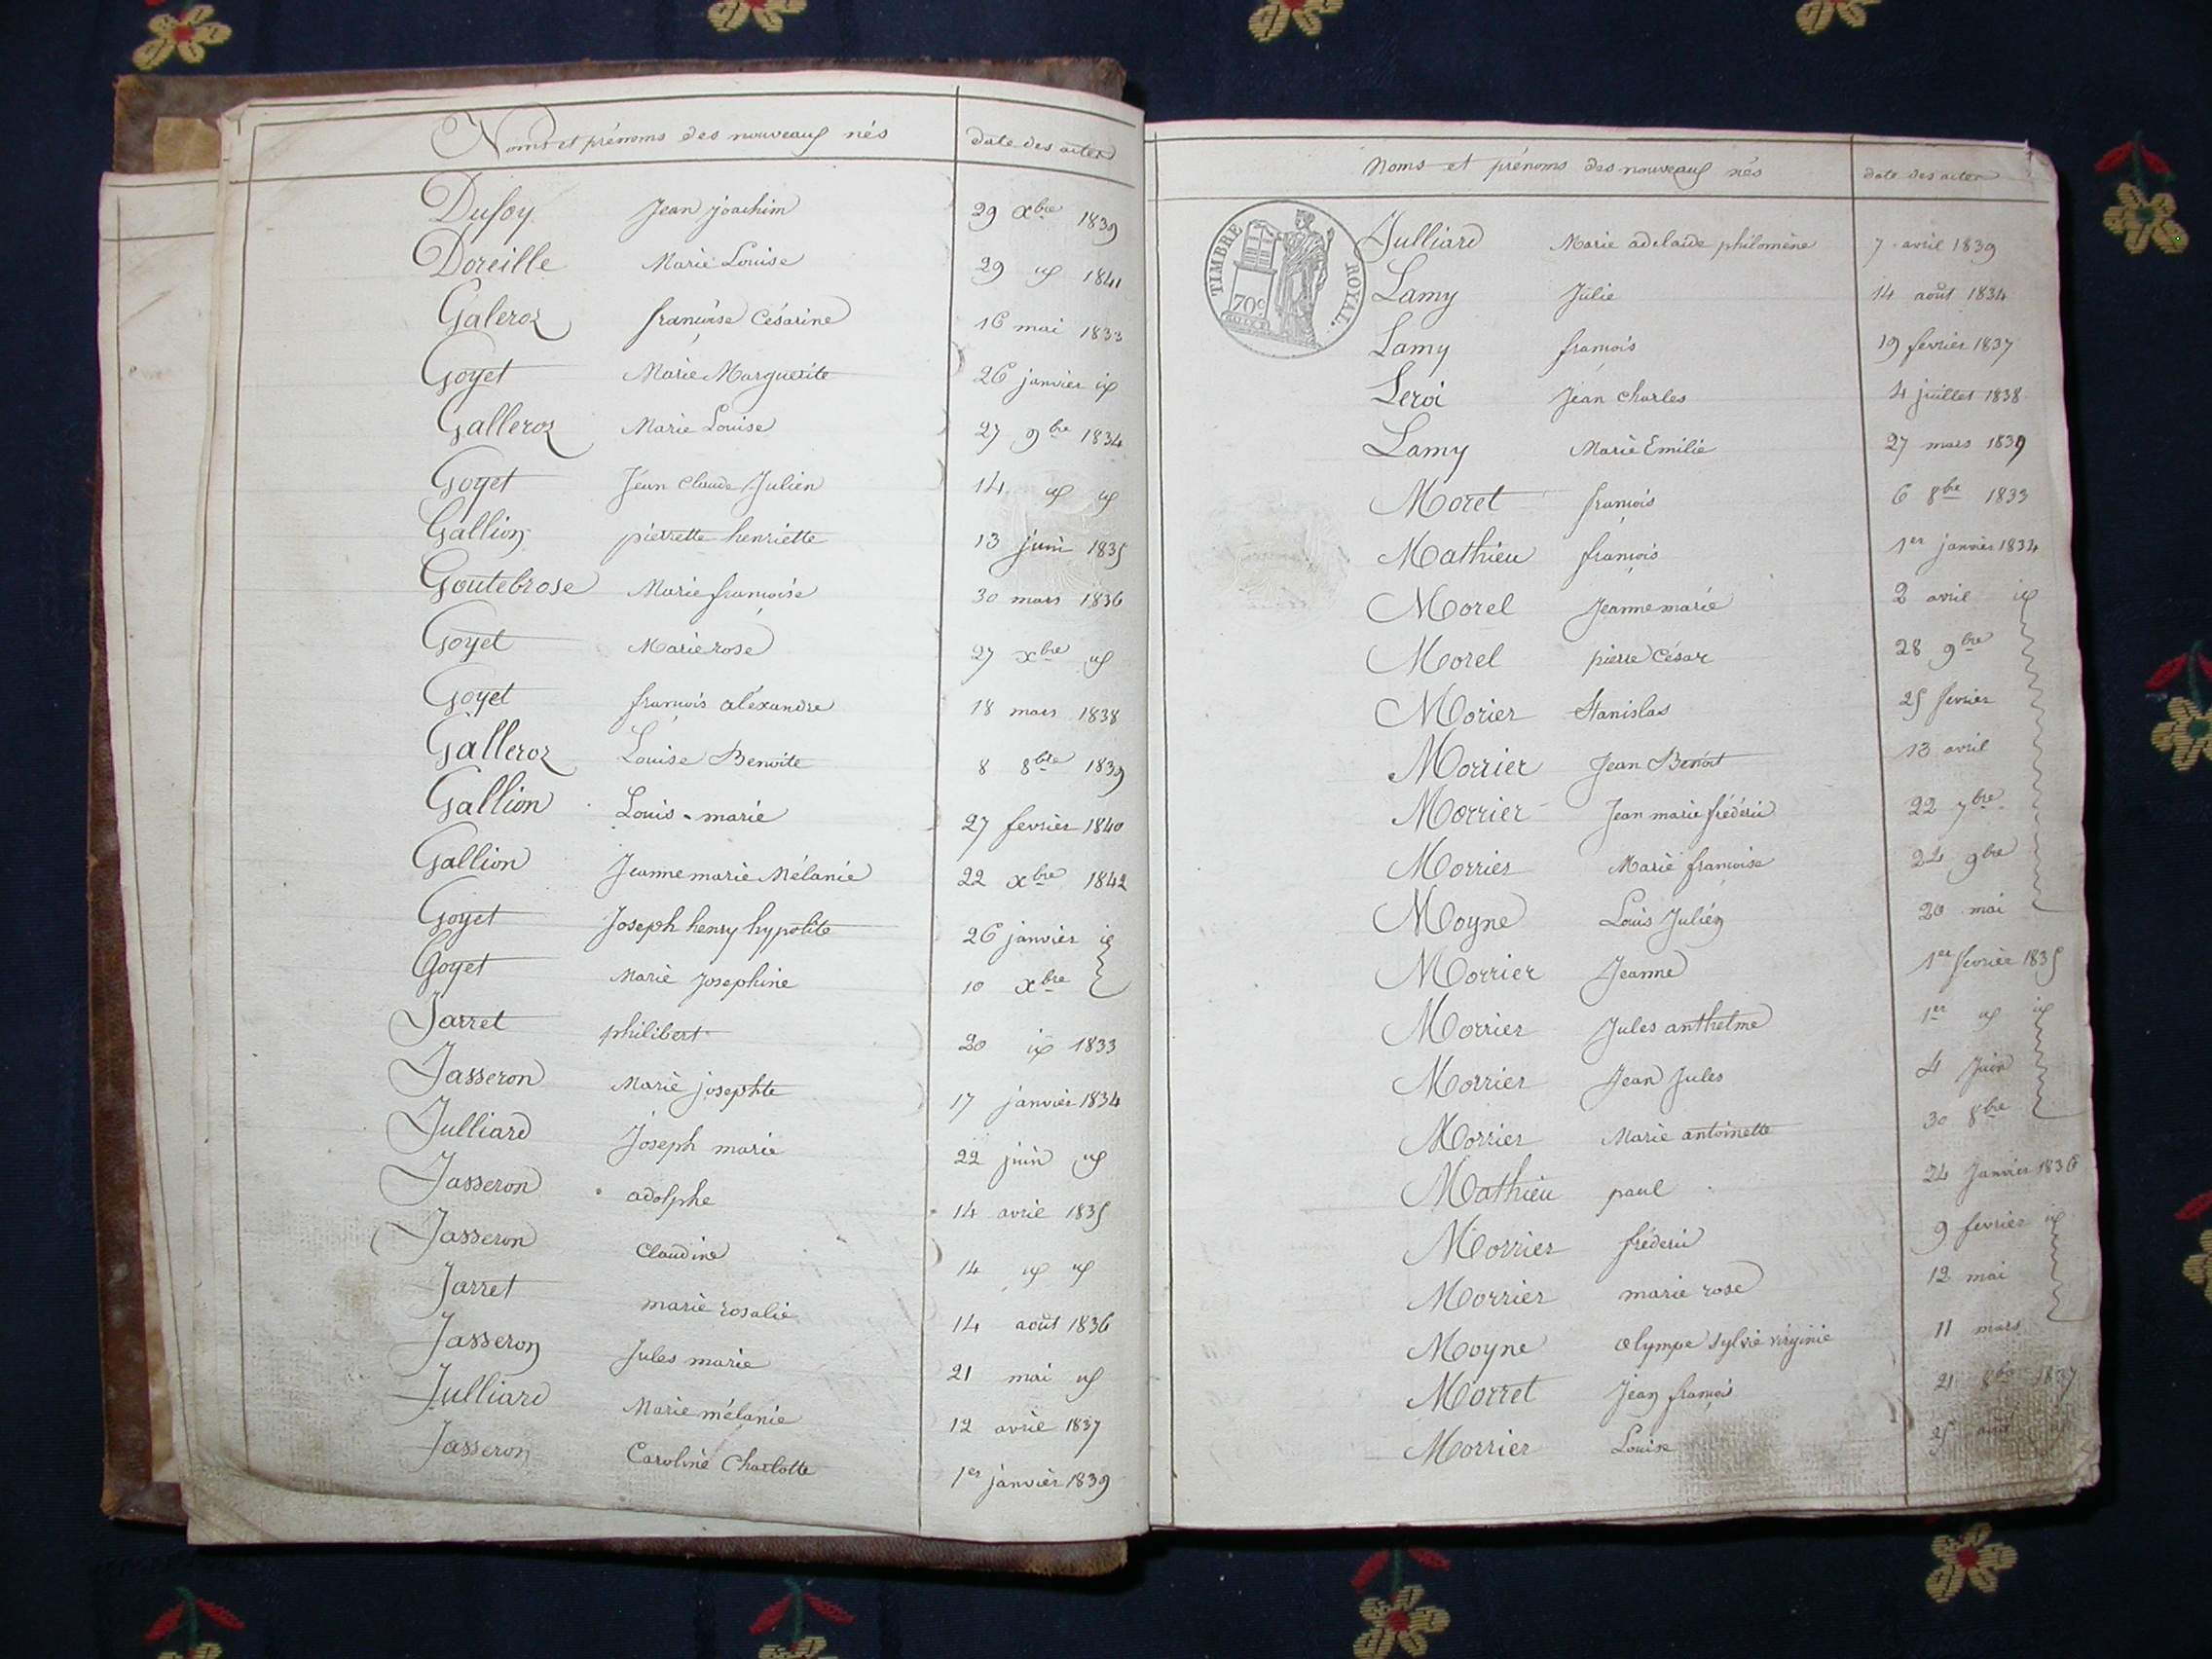 Noms et prénoms des nouveaux nés date des actes
Dufoy Jean joachim 29 xbre 1839
Doreille Marie Louise 29 id 1841
Galeroz françoise Césarine 16 mai 1833
Goyet Marie Marguerite 26 janvier id
Galleroz Marie Louise 27 9bre 1834
Goyet Jean Claude Julien 14 id id
Gallion pierrette henriette 13 juin 1835
Goutebrose Marie françoise 30 mars 1836
Goyet Marie rose 27 xbre id
Goyet françois aléxandre 18 mars 1838
Galleroz Louise Benoite 8 8bre 1839
Gallion Louis-marie 27 fevrier 1840
Gallion Jeanne marie Mélanie 22 xbre 1842
Goyet Joseph henry hypolite 26 janvier id
Goyet Marie Josephine 10 xbre
Jarret philibert 20 id 1833
Jasseron Marie josephte 17 janvier 1834
Julliard Joseph marie 22 juin id
Jasseron adolphe 14 avril 1835
Jasseron Claudine 14 id id
Jarret marie rosalie 14 août 1836
Jasseron Jules marie 21 mai id
Julliard Marie mélanie 12 avril 1837
Jasseron Caroline Charlotte 1er janvier 1839
Noms et prénoms des nouveaux nés date des actes
TIMBRE ROYAL.
70c
Julliard Marie adelaide philomène 7 avril 1839
Lamy Julie 14 août 1834
Lamy françois 19 fevrier 1837
Leroi Jean Charles 4 juillet 1838
Lamy Marie Emilie 27 mars 1839
Moret françois 6 8bre 1833
Mathieu françois 1er janvier 1834
Morel Jeanne marie 2 avril id
Morel pierre César 28 9bre
Morier Stanislas 25 fevrier
Morrier Jean Benoit 13 avril
Morrier Jean marie frédéric 22 7bre
Morrier Marie françoise 24 9bre
Moyne Louis Julien 20 mai
Morrier Jeanne 1er fevrier 1835
Morrier Jules anthelme 1er id id
Morrier Jean Jules 4 Juin
Morrier Marie antoinette 30 8bre
Mathieu paul 24 Janvier 1836
Morrier fréderic 9 fevrier id
Morrier marie rose 12 mai
Moyne olympe Sylvie virginie 11 mars
Morret Jean françois 21 8bre 1837
Morrier Louise 25 août